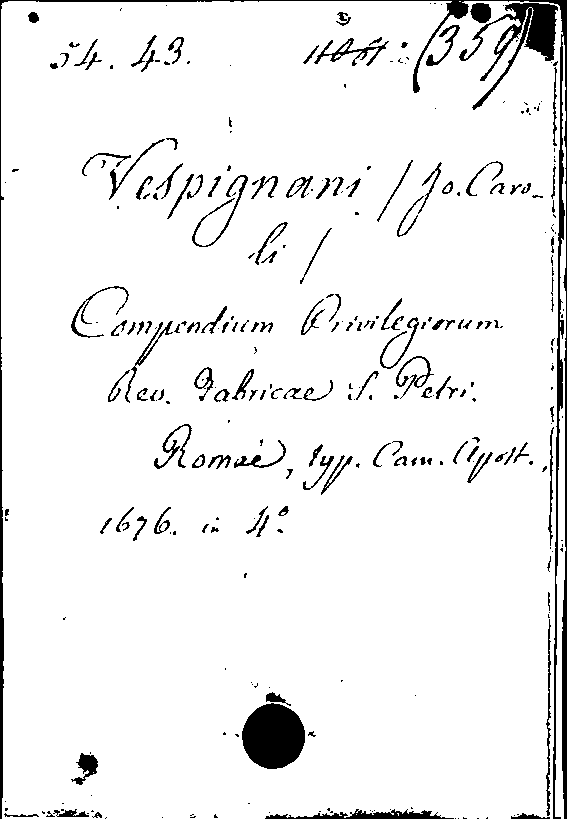 54. 43. (359)
Vespignani / Jo. Caro-
li /
Compendium Privilegiorum
Rev. Fabricae S. Petri.
Romae, typ. Cam. Apost.,
1676. in 4º.